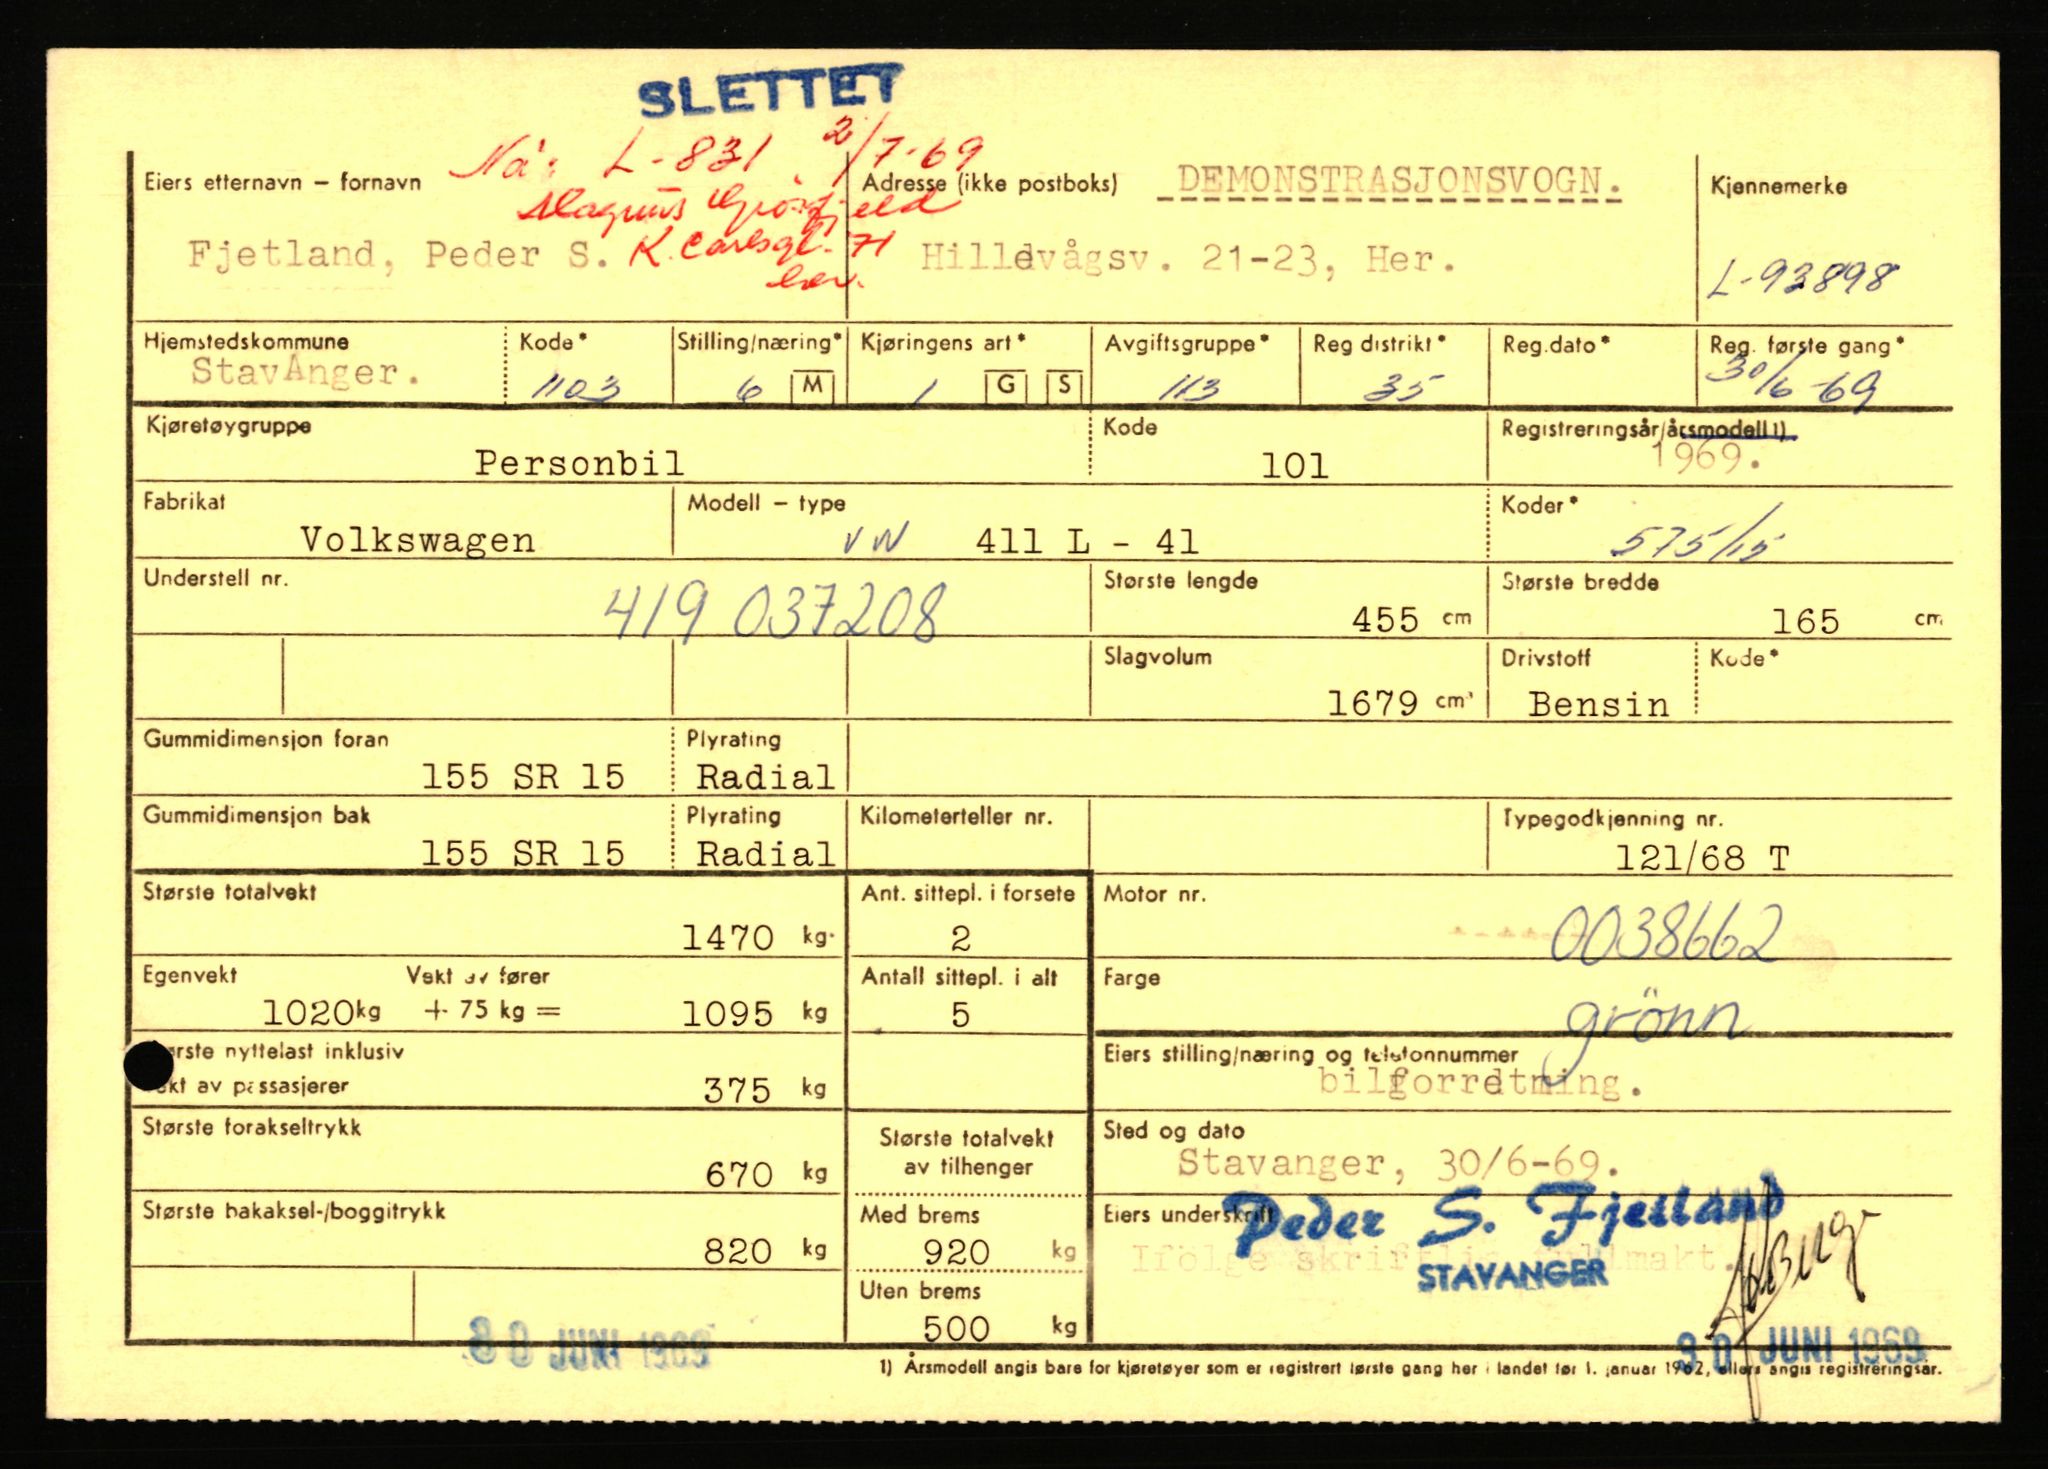 SLETTET
Nå: L-831 2/7-69
Eiers etternavn – fornavn
Adresse (ikke postboks)
DEMONSTRASJONSVOGN.
Kjennemerke
Magnus
Fjetland, Peder S.
K. Carlsgt. 71
her.
Hillevågsv. 21-23, Her.
L-93898
Hjemstedskommune Kode* Stilling/næring* Kjøringens art* Avgiftsgruppe* Reg distrikt* Reg.dato* Reg. første gang*
StavAnger. 1103 6 M 1 G S 113 35 30/6-69
Kjøretøygruppe Kode Registreringsår/årsmodell 1)
Personbil 101 1969.
Fabrikat Modell – type Koder*
Volkswagen VW 411 L - 41 575/115
Understell nr. Største lengde Største bredde
419 037208 455 cm 165 cm
Slagvolum Drivstoff Kode*
1679 cm³ Bensin
Gummidimensjon foran Plyrating
155 SR 15 Radial
Gummidimensjon bak Plyrating Kilometerteller nr. Typegodkjenning nr.
155 SR 15 Radial 121/68 T
Største totalvekt Ant. sittepl. i forsete Motor nr.
1470 kg. 2 0038662
Egenvekt Vekt av fører Antall sittepl. i alt Farge
1020 kg + 75 kg = 1095 kg 5 grönn
Største nyttelast inklusiv Eiers stilling/næring og telefonnummer
vekt av passasjerer 375 kg bilforretning.
Største forakseltrykk Største totalvekt Sted og dato
670 kg av tilhenger Stavanger, 30/6-69.
Største bakaksel-/boggitrykk Med brems Eiers underskrift Peder S. Fjetland
820 kg 920 kg Ifölge skriftlig fullmakt.
STAVANGER
Uten brems
500 kg
30 JUNI 1969 30 JUNI 1969
1) Årsmodell angis bare for kjøretøyer som er registrert første gang her i landet før 1. januar 1962, ellers angis registreringsår.